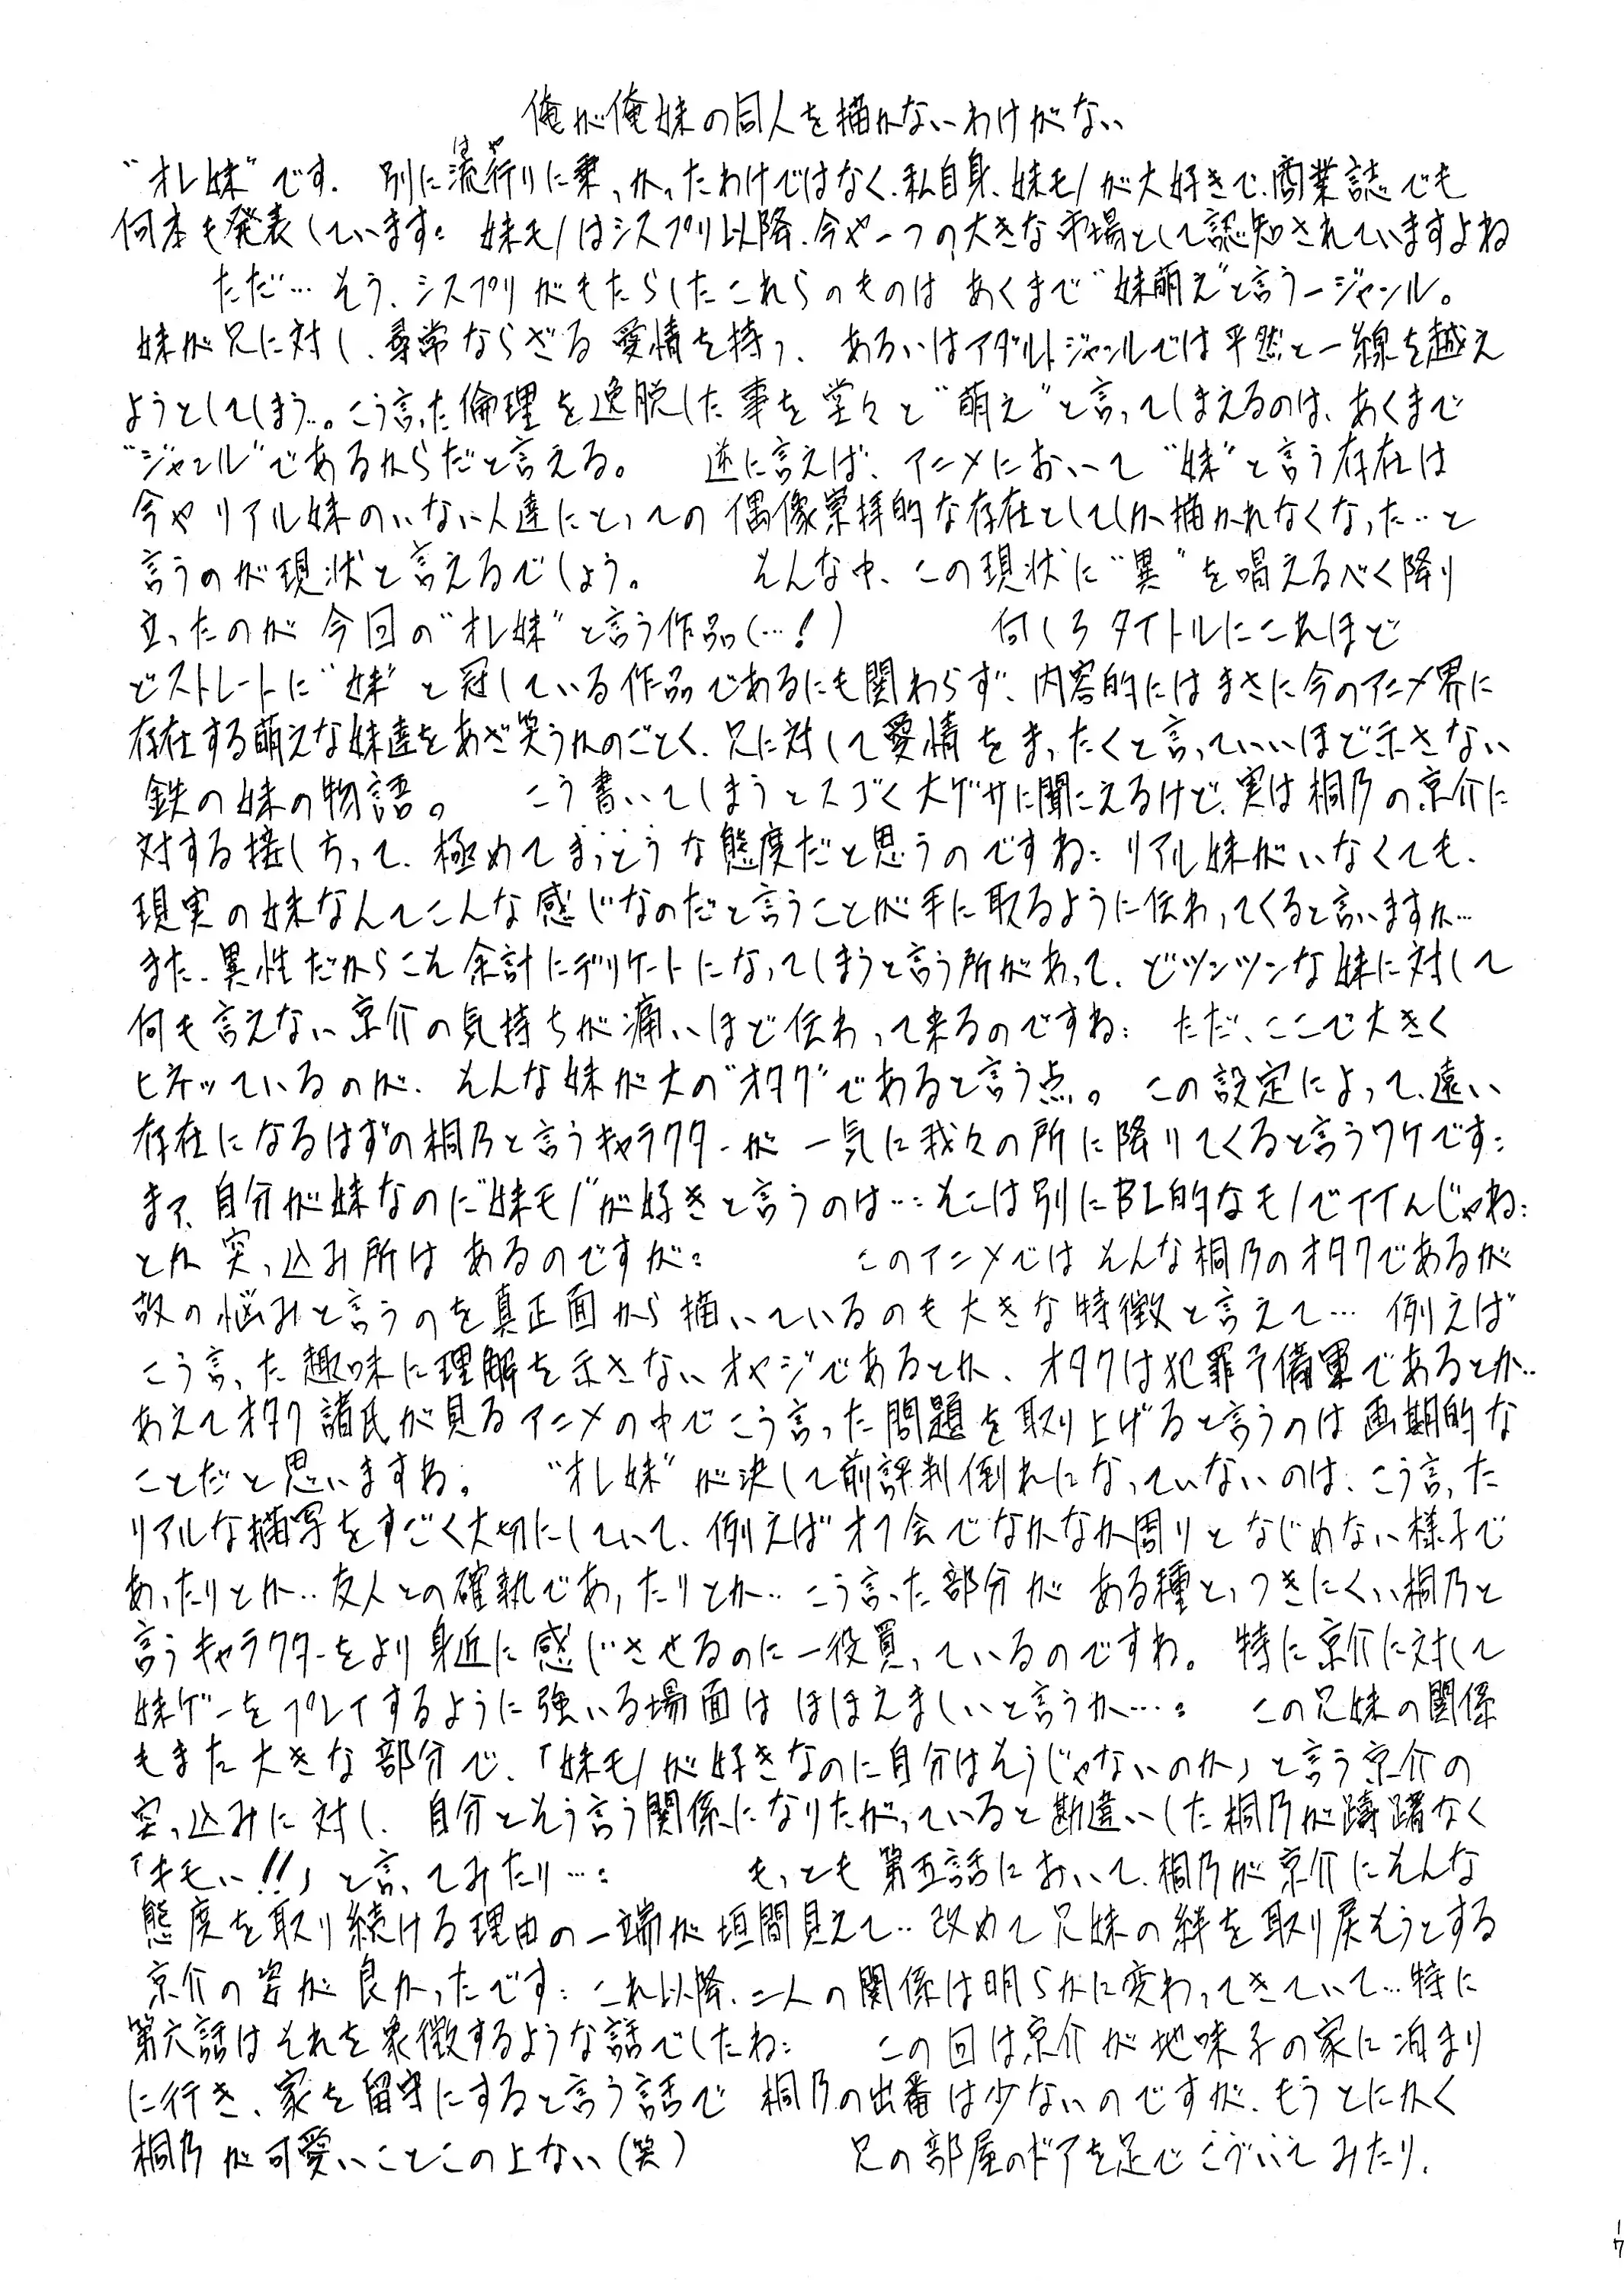 俺が俺妹の同人を描かないわけがない
はや
“オレ妹”です. 別に流行りに乗っかったわけではなく、私自身、妹モノが大好きで、商業誌でも
何本も発表しています: 妹モノはシスプリ以降、今や一つの大きな市場として認知されていますよね
ただ… そう、シスプリがもたらしたこれらのものは あくまで“妹萌え”と言う一ジャンル。
妹が兄に対し、尋常ならざる愛情を持つ、 あるいはアダルトジャンルでは平然と一線を越え
ようとしてしまう‥。こう言った倫理を逸脱した事を堂々と“萌え”と言ってしまえるのは、あくまで
“ジャンル”であるからだと言える。 逆に言えば、アニメにおいて“妹”と言う存在は
今やリアル妹のいない人達にとっての偶像崇拝的な存在としてしか描かれなくなった‥と
言うのが現状と言えるでしょう。 そんな中、この現状に“異”を唱えるべく降り
立ったのが今回の“オレ妹”と言う作品(…!) 何しろタイトルにこれほど
どストレートに“妹”と冠している作品であるにも関わらず、内容的にはまさに今のアニメ界に
存在する萌えな妹達をあざ笑うかのごとく、兄に対して愛情をまったくと言っていいほど示さない
鉄の妹の物語。 こう書いてしまうとスゴく大ゲサに聞こえるけど、実は桐乃の京介に
対する接し方って、極めてまっとうな態度だと思うのですね: リアル妹がいなくても、
現実の妹なんてこんな感じなのだと言うことが手に取るように伝わってくると言いますか…
また、異性だからこそ余計にデリケートになってしまうと言う所があって、どツンツンな妹に対して
何も言えない京介の気持ちが痛いほど伝わって来るのですね: ただ、ここで大きく
ヒネッているのが、そんな妹が大の“オタク”であると言う点。この設定によって、遠い
存在になるはずの桐乃と言うキャラクターが 一気に我々の所に降りてくると言うワケです:
まア、自分が妹なのに“妹モノ”が好きと言うのは…: そこは別にBL的なモノでイイんじゃね:
とか 突っ込み所は あるのですが: このアニメではそんな桐乃のオタクであるが
故の悩みと言うのを真正面から描いているのも大きな特徴と言えて… 例えば
こう言った趣味に理解を示さないオヤジであるとか、オタクは犯罪予備軍であるとか‥
あえてオタク諸氏が見るアニメの中でこう言った問題を取り上げると言うのは画期的な
ことだと思いますね。 “オレ妹”が決して前評判倒れになっていないのは、こう言った
リアルな描写をすごく大切にしていて、例えばオフ会でなかなか周りとなじめない様子で
あったりとか‥友人との確執であったりとか‥こう言った部分が ある種とっつきにくい桐乃と
言うキャラクターをより身近に感じさせるのに一役買っているのですね。 特に京介に対して
妹ゲーをプレイするように強いる場面は ほほえましいと言うか…: この兄妹の関係
もまた大きな部分で、「妹モノが好きなのに自分はそうじゃないのか」と言う京介の
突っ込みに対し、自分とそう言う関係になりたがっていると勘違いした桐乃が躊躇なく
「キモい!!」と言ってみたり…: もっとも第五話において、桐乃が京介にそんな
態度を取り続ける理由の一端が垣間見えて‥改めて兄妹の絆を取り戻そうとする
京介の姿が良かったです: これ以降、二人の関係は明らかに変わってきていて…特に
第六話はそれを象徴するような話でしたね: この回は京介が地味子の家に泊まり
に行き、家を留守にすると言う話で 桐乃の出番は少ないのですが、もうとにかく
桐乃が可愛いことこの上ない(笑) 兄の部屋のドアを足でこづいてみたり、
17